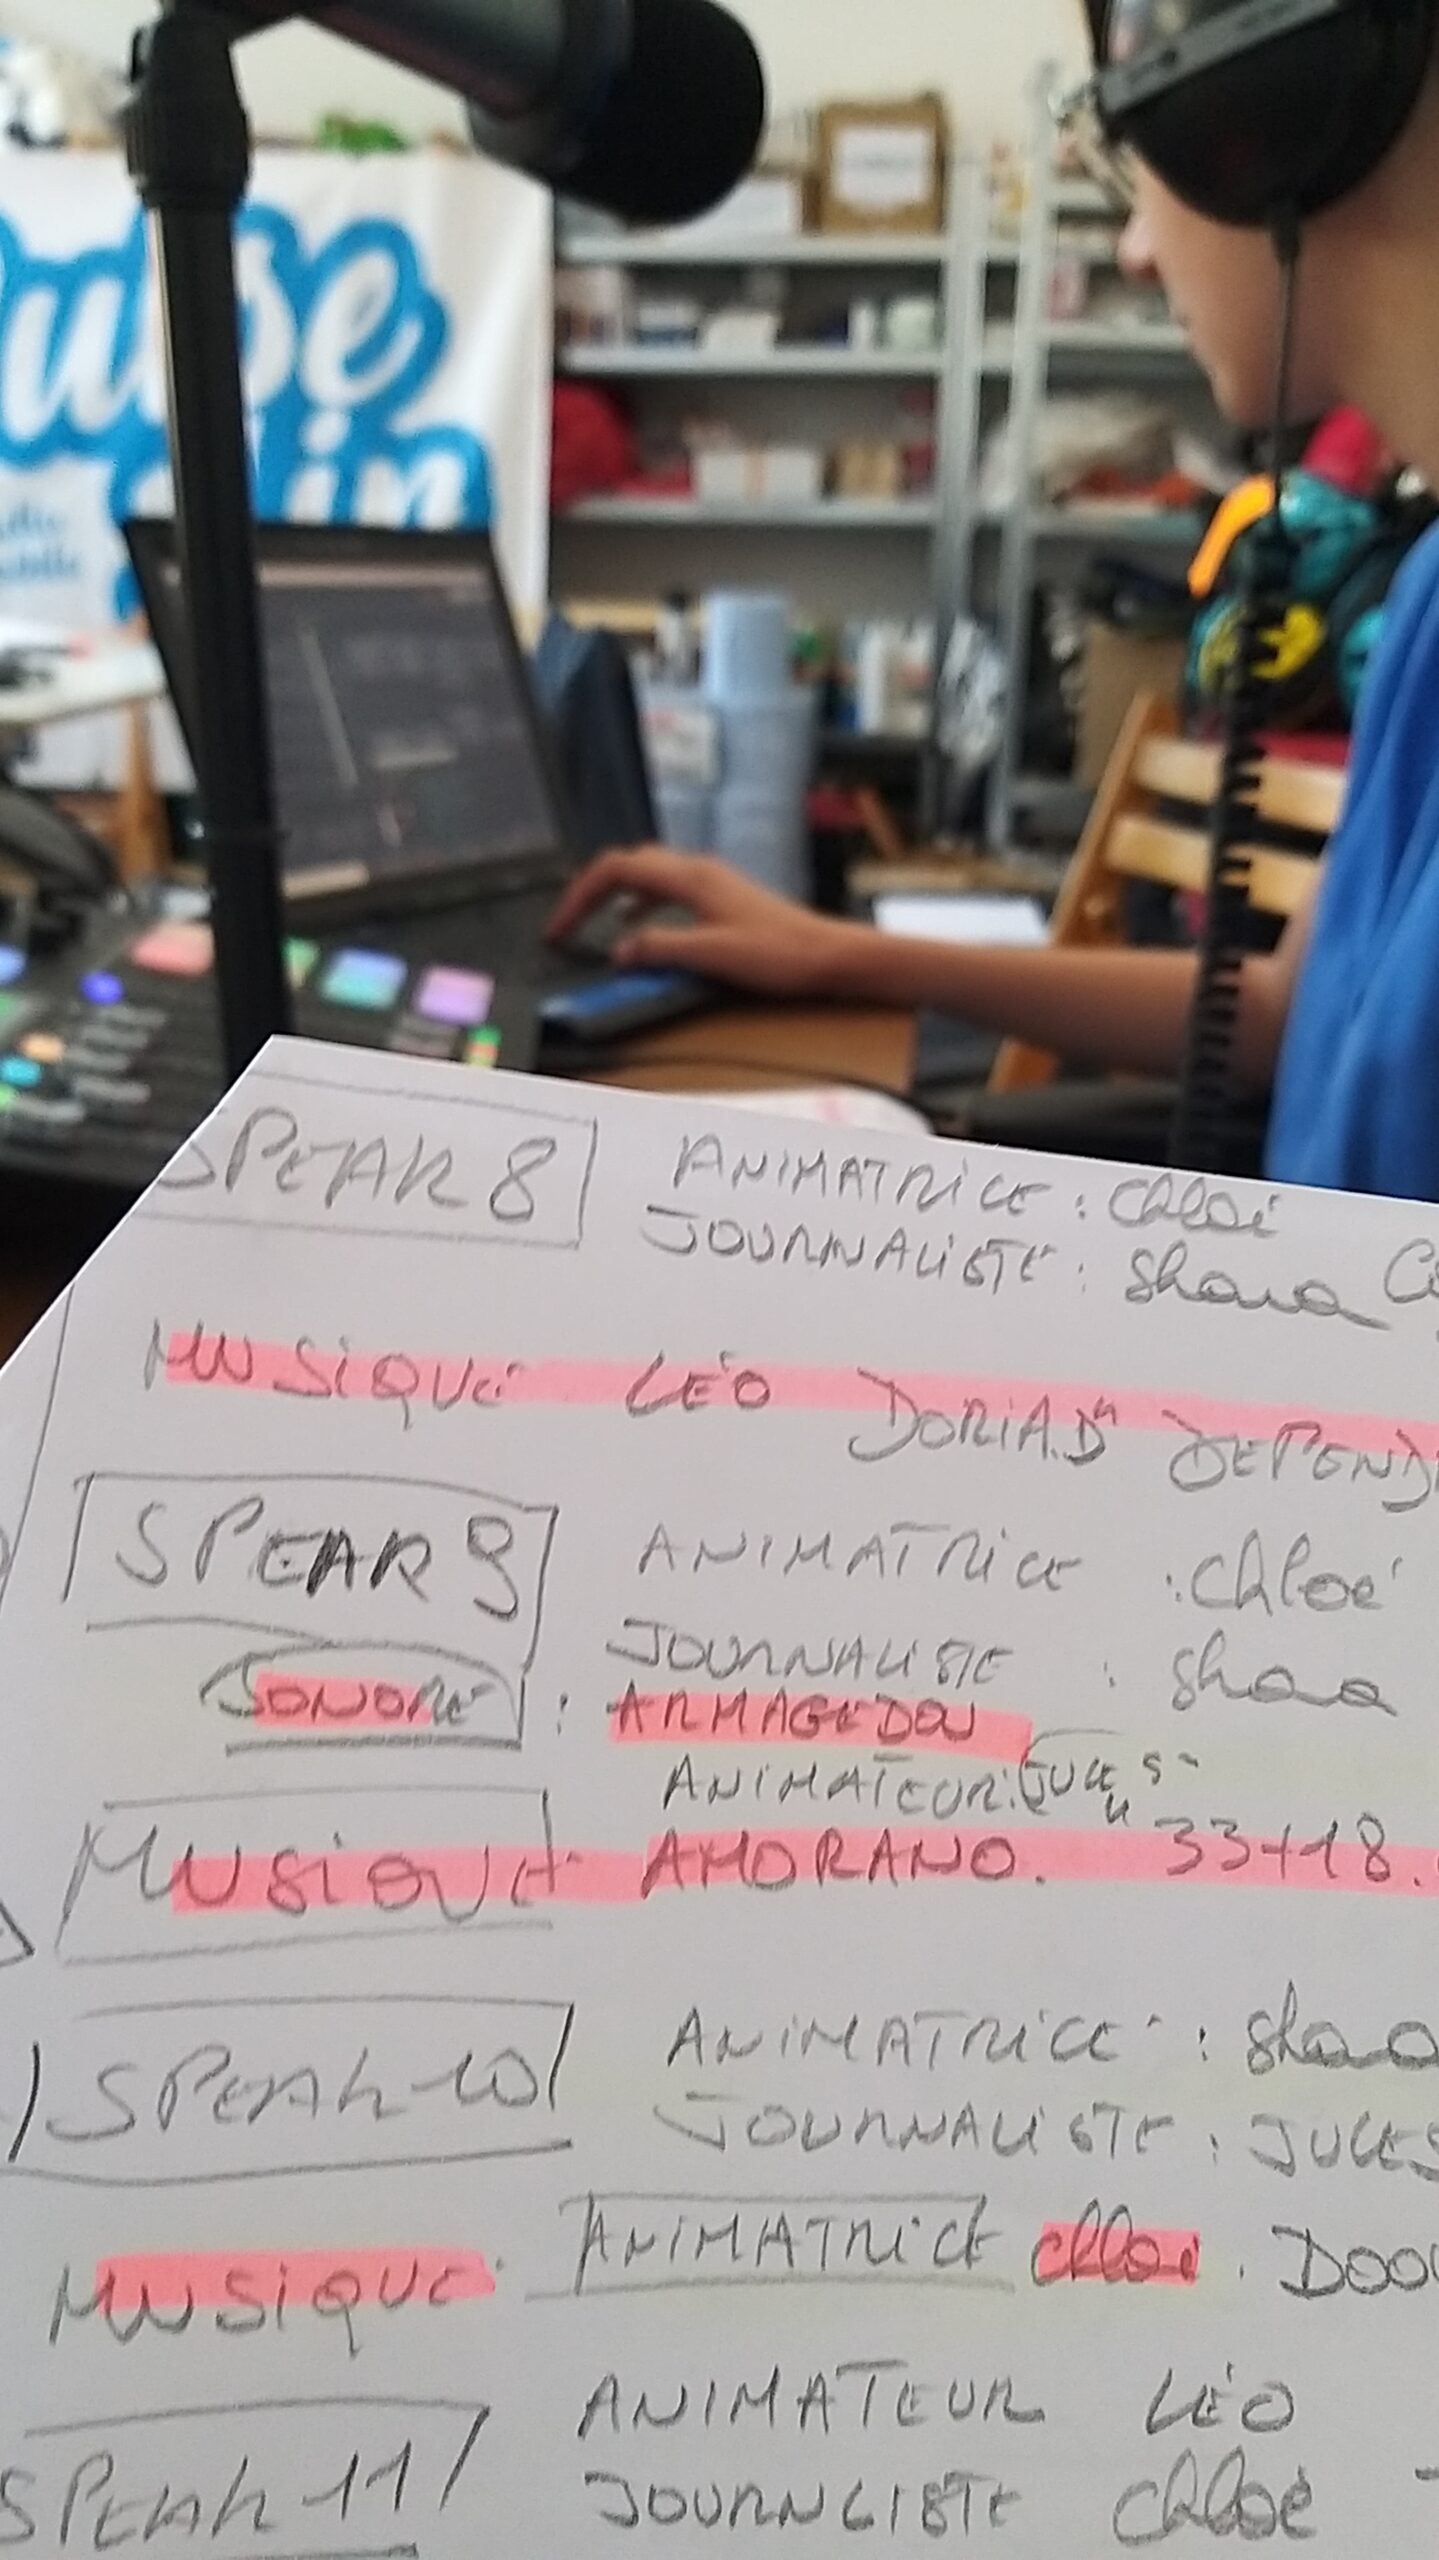 ulse
SPEAK 8
ANIMATRICE : Chloé
JOURNALISTE : Shana
MUSIQUE LÉO DORIAD "DEPEND
SPEAK 9
ANIMATRICE : Chloé
JOURNALISTE : Shana
SONORE : ARMAGEDON
ANIMATEUR : JULES
MUSIQUE AMORANO. "33+18.
SPEAK 10
ANIMATRICE : Shana
JOURNALISTE : JULES
MUSIQUE ANIMATRICE Chloé. DOOU
ANIMATEUR LÉO
SPEAK 11
JOURNLISTE Chloé